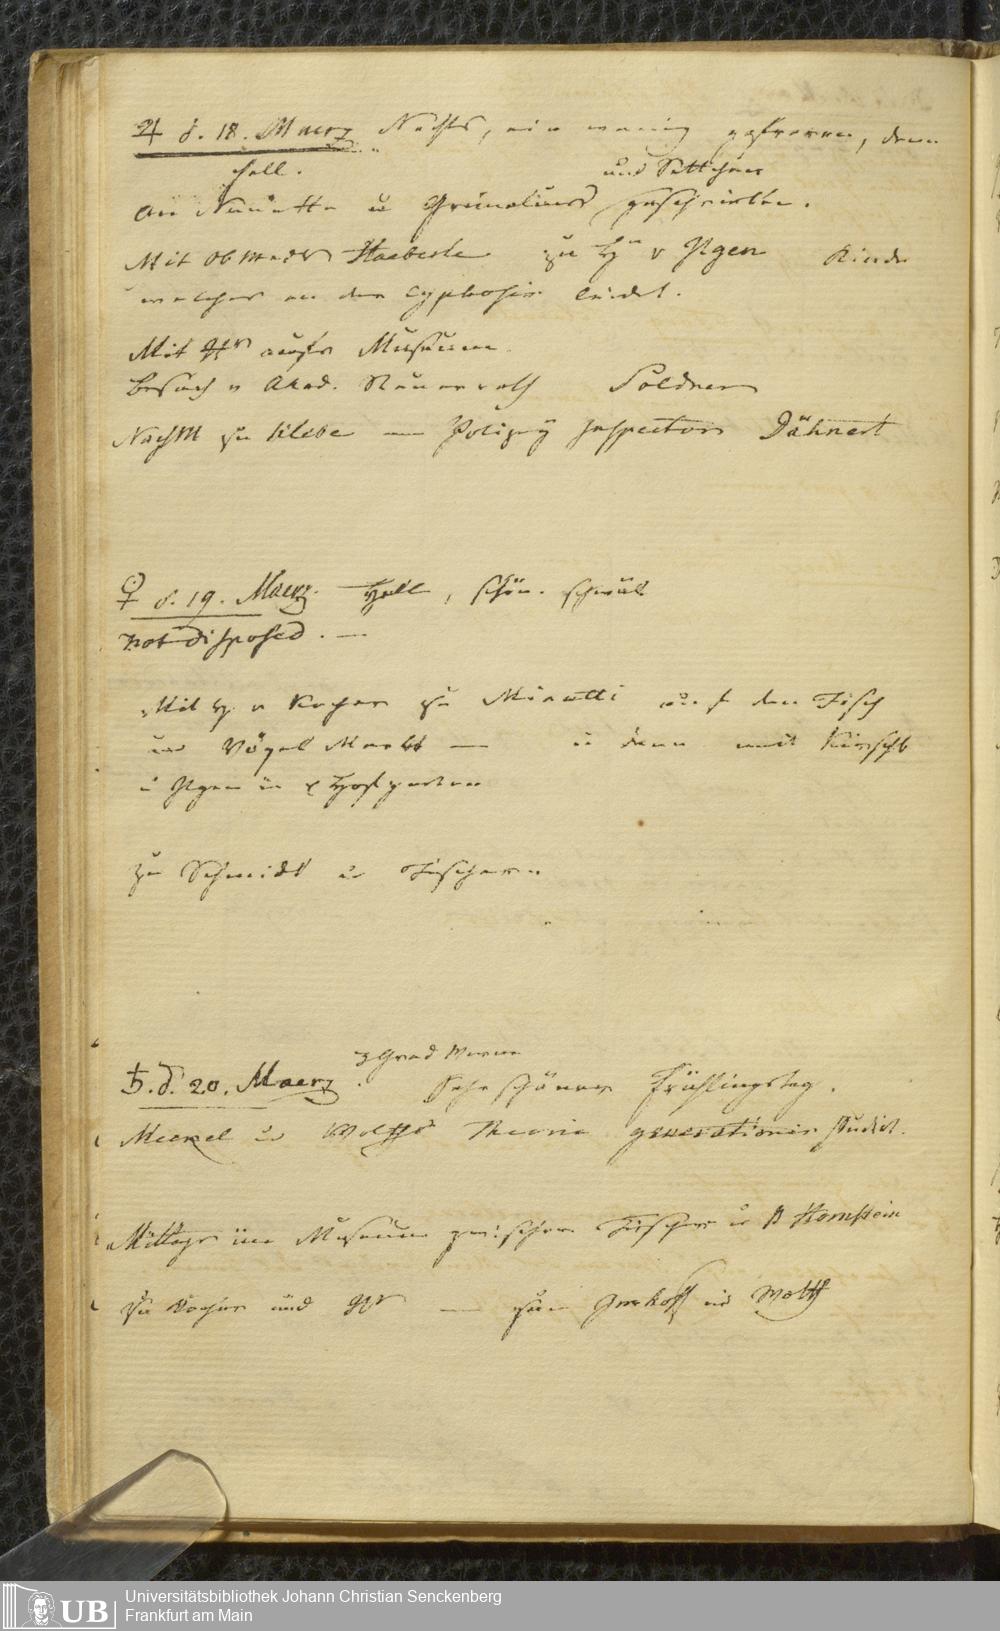 ♃ d. 18. Maerz Nachts, ein wenig gefroren, dann
hell.
und Sattihuer
An Nanette u Grünelius geschrieben.
Mit Ob Med Haeberle zu Hn v Ilgen Kinde
welches an der Cyphosis leidet.
Mit aufs Museum.
Besuch v Akad. Soldner
NachM zu Klebe — Polizey Inspector Dähnert
♀ d. 19. Maerz. Hell, schön. schwül
not disposed. —
Mit H. v zu Minutti auf den Fisch
und Vögel Markt — u dann mit
u Ilgen in Hofgarten
Zu Schmidt u Fischern
3 Grad Wärme
♄. d. 20. Maerz. Sehr schöner Frühlingstag.
Meckel u Wolffs Theoria generationis studirt.
Mittags im Museum zwischen Fischer u B Hornstein
zu und — zum Imhoff u Wolff
Universitätsbibliothek Johann Christian Senckenberg
Frankfurt am Main
UB